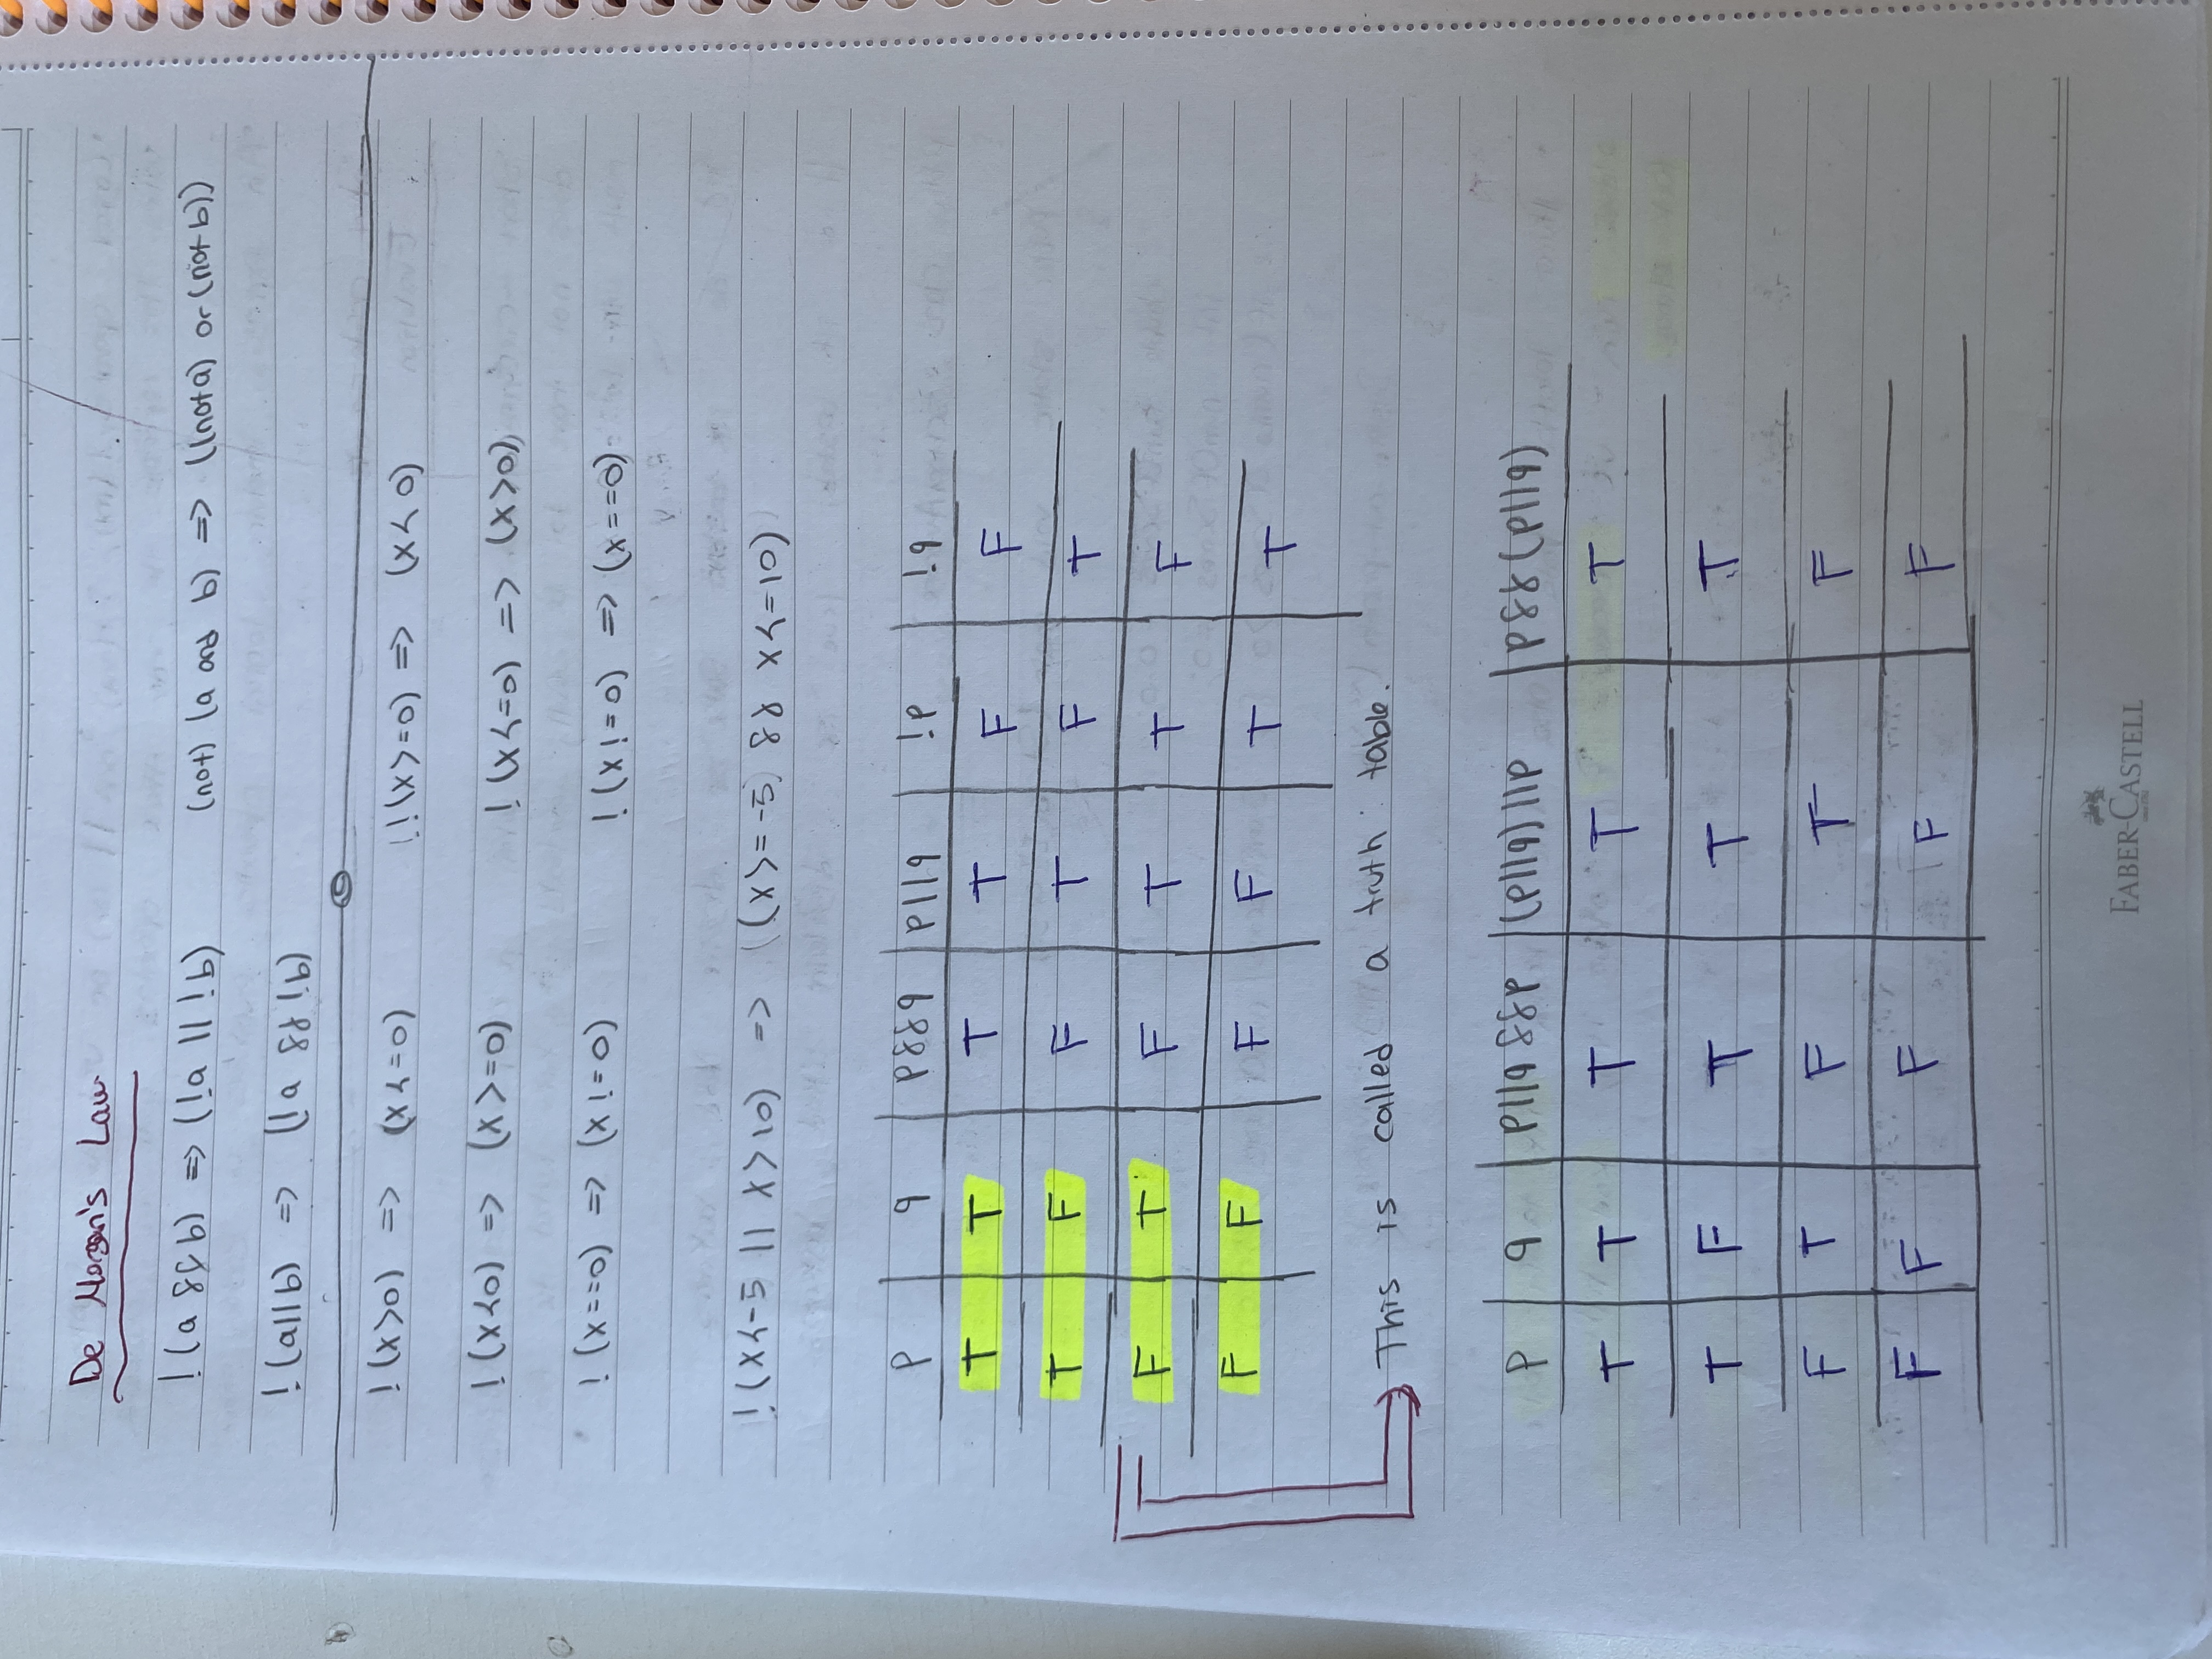 De Morgan's Law
!(a && b) => (!a || !b) (not) (a and b) => ((not a) or (not b))
!(a||b) => (!a && !b)
!(x>0) => (x<=0) !!(x>=0) => (x<0)
!(x<0) => (x>=0) !(x<=0) => (x>0)
!(x==0) => (x!=0) !(x!=0) => (x==0)
!(x<-5 || x>10) => ((x>=-5) && x<=10)
p q p&&q p||q !p !q
T T T T F F
T F F T F T
F T F T T F
F F F F T T
This is called a truth table.
p q p||q &&p (p||q)||p p&&(p||q)
T T T T T
T F T T T
F T F T F
F F F F F
FABER-CASTELL